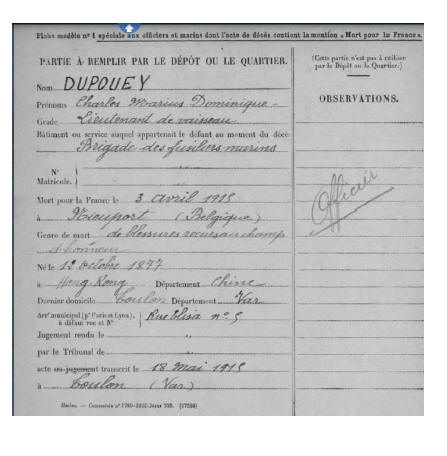 Fiche modèle nº 1 spéciale aux officiers et marins dont l'acte de décès contient la mention « Mort pour la France ».
PARTIE À REMPLIR PAR LE DÉPÔT OU LE QUARTIER.
Nom DUPOUEY
Prénoms Charles Marius Dominique
Grade Lieutenant de vaisseau
Bâtiment ou service auquel appartenait le défunt au moment du décès
Brigade des fusiliers marins
Nº
Matricule.
Mort pour la France le 3 avril 1915
à Nieuport (Belgique)
Genre de mort de blessures reçues au champ
d'honneur
Né le 12 octobre 1877
à Hong-Kong Département Chine
Dernier domicile Toulon Département Var
Arrt municipal (pr Paris et Lyon),
à défaut rue et Nº
Rue Elisa nº 5
Jugement rendu le "
par le Tribunal de "
acte ou jugement transcrit le 18 mai 1915
à Toulon (Var)
(Cette partie n'est pas à utiliser
par le Dépôt ou le Quartier.)
OBSERVATIONS.
Officier